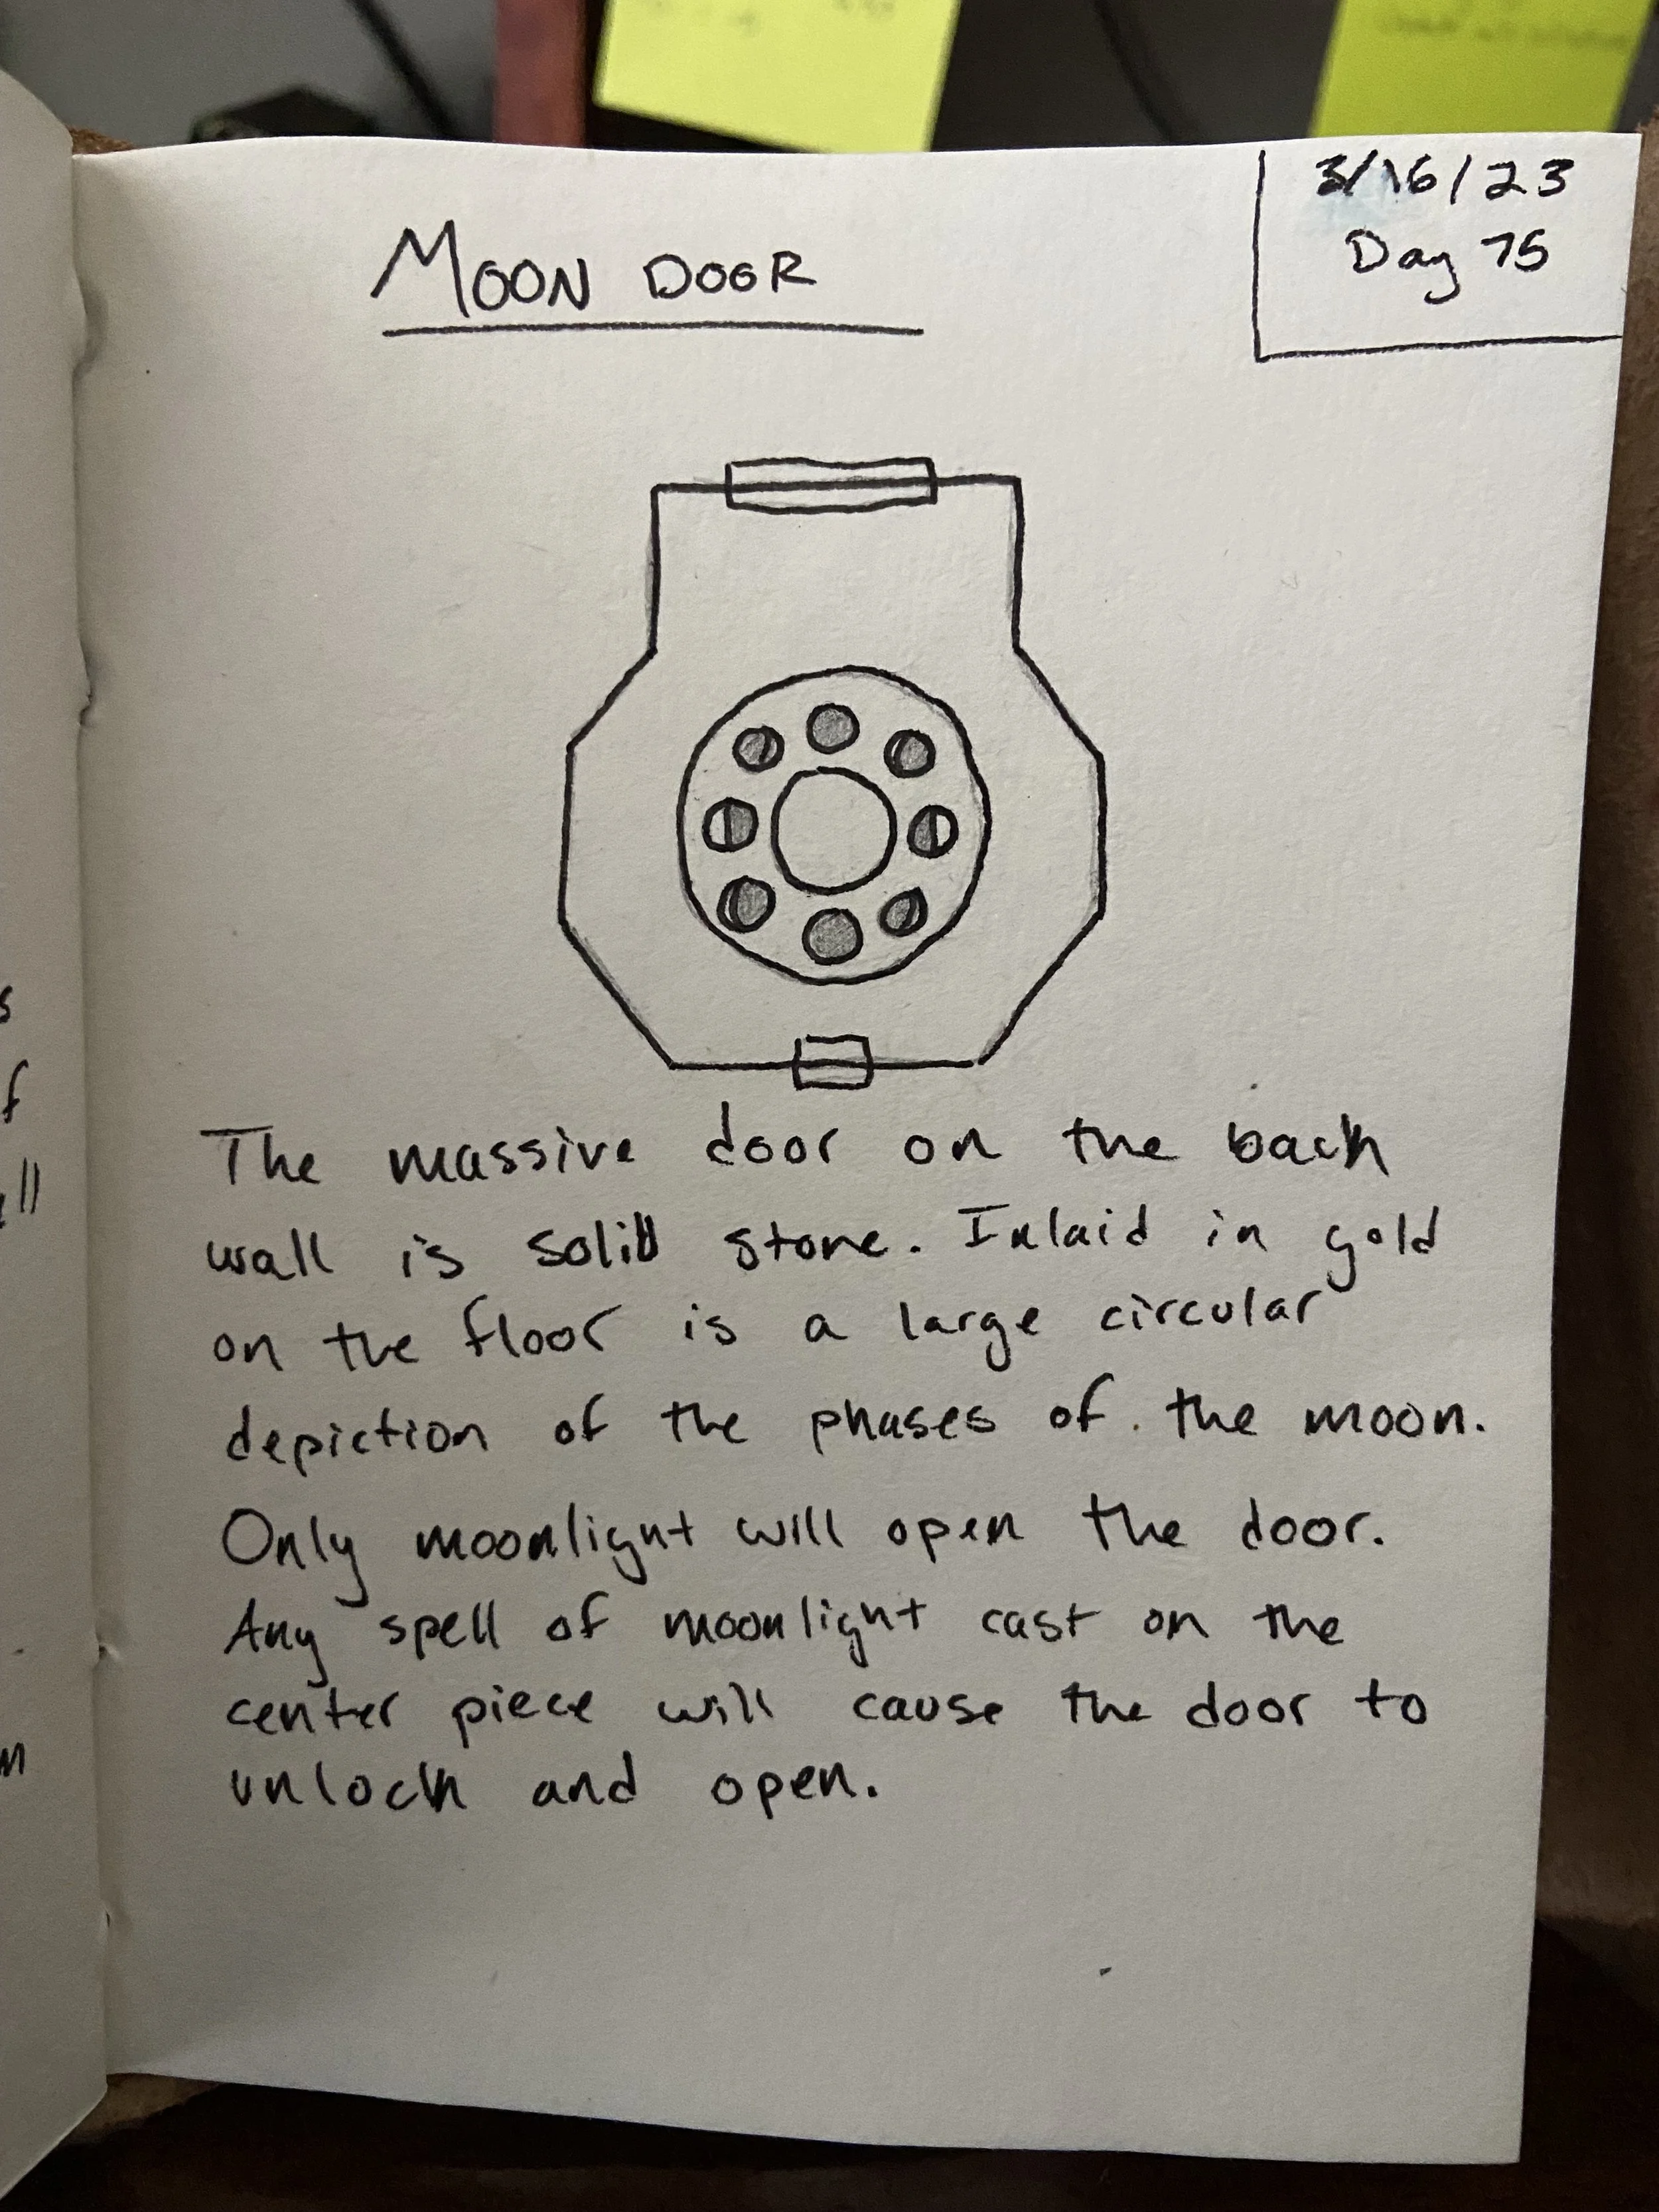 3/16/23
Day 75
MOON DOOR
The massive door on the back
wall is solid stone. Inlaid in gold
on the floor is a large circular
depiction of the phases of the moon.
Only moonlight will open the door.
Any spell of moonlight cast on the
center piece will cause the door to
unlock and open.